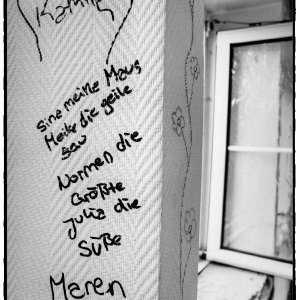 Sina meine Maus
Meike die geile
Sau
Normen die
Größte
Julia die
Süße
Maren